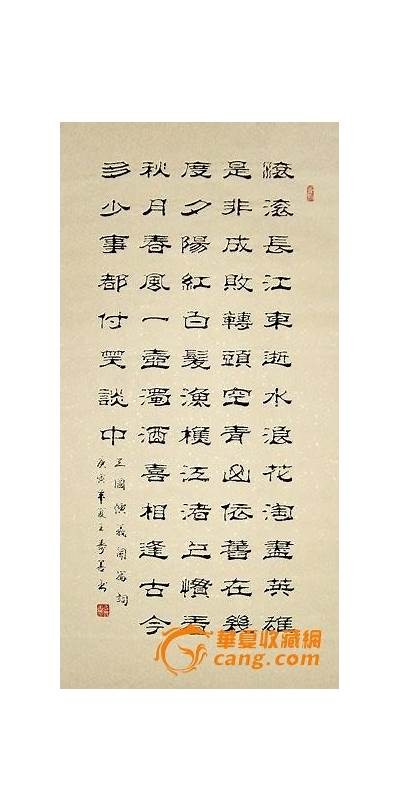 滚滚長江東逝水浪花淘盡英雄
是非成敗轉頭空青山依舊在幾
度夕陽紅白髮漁樵江渚上慣看
秋月春風一壺濁酒喜相逢古今
多少事都付笑談中
三國演義開篇詞
庚寅年夏王
華夏收藏網
cang.com